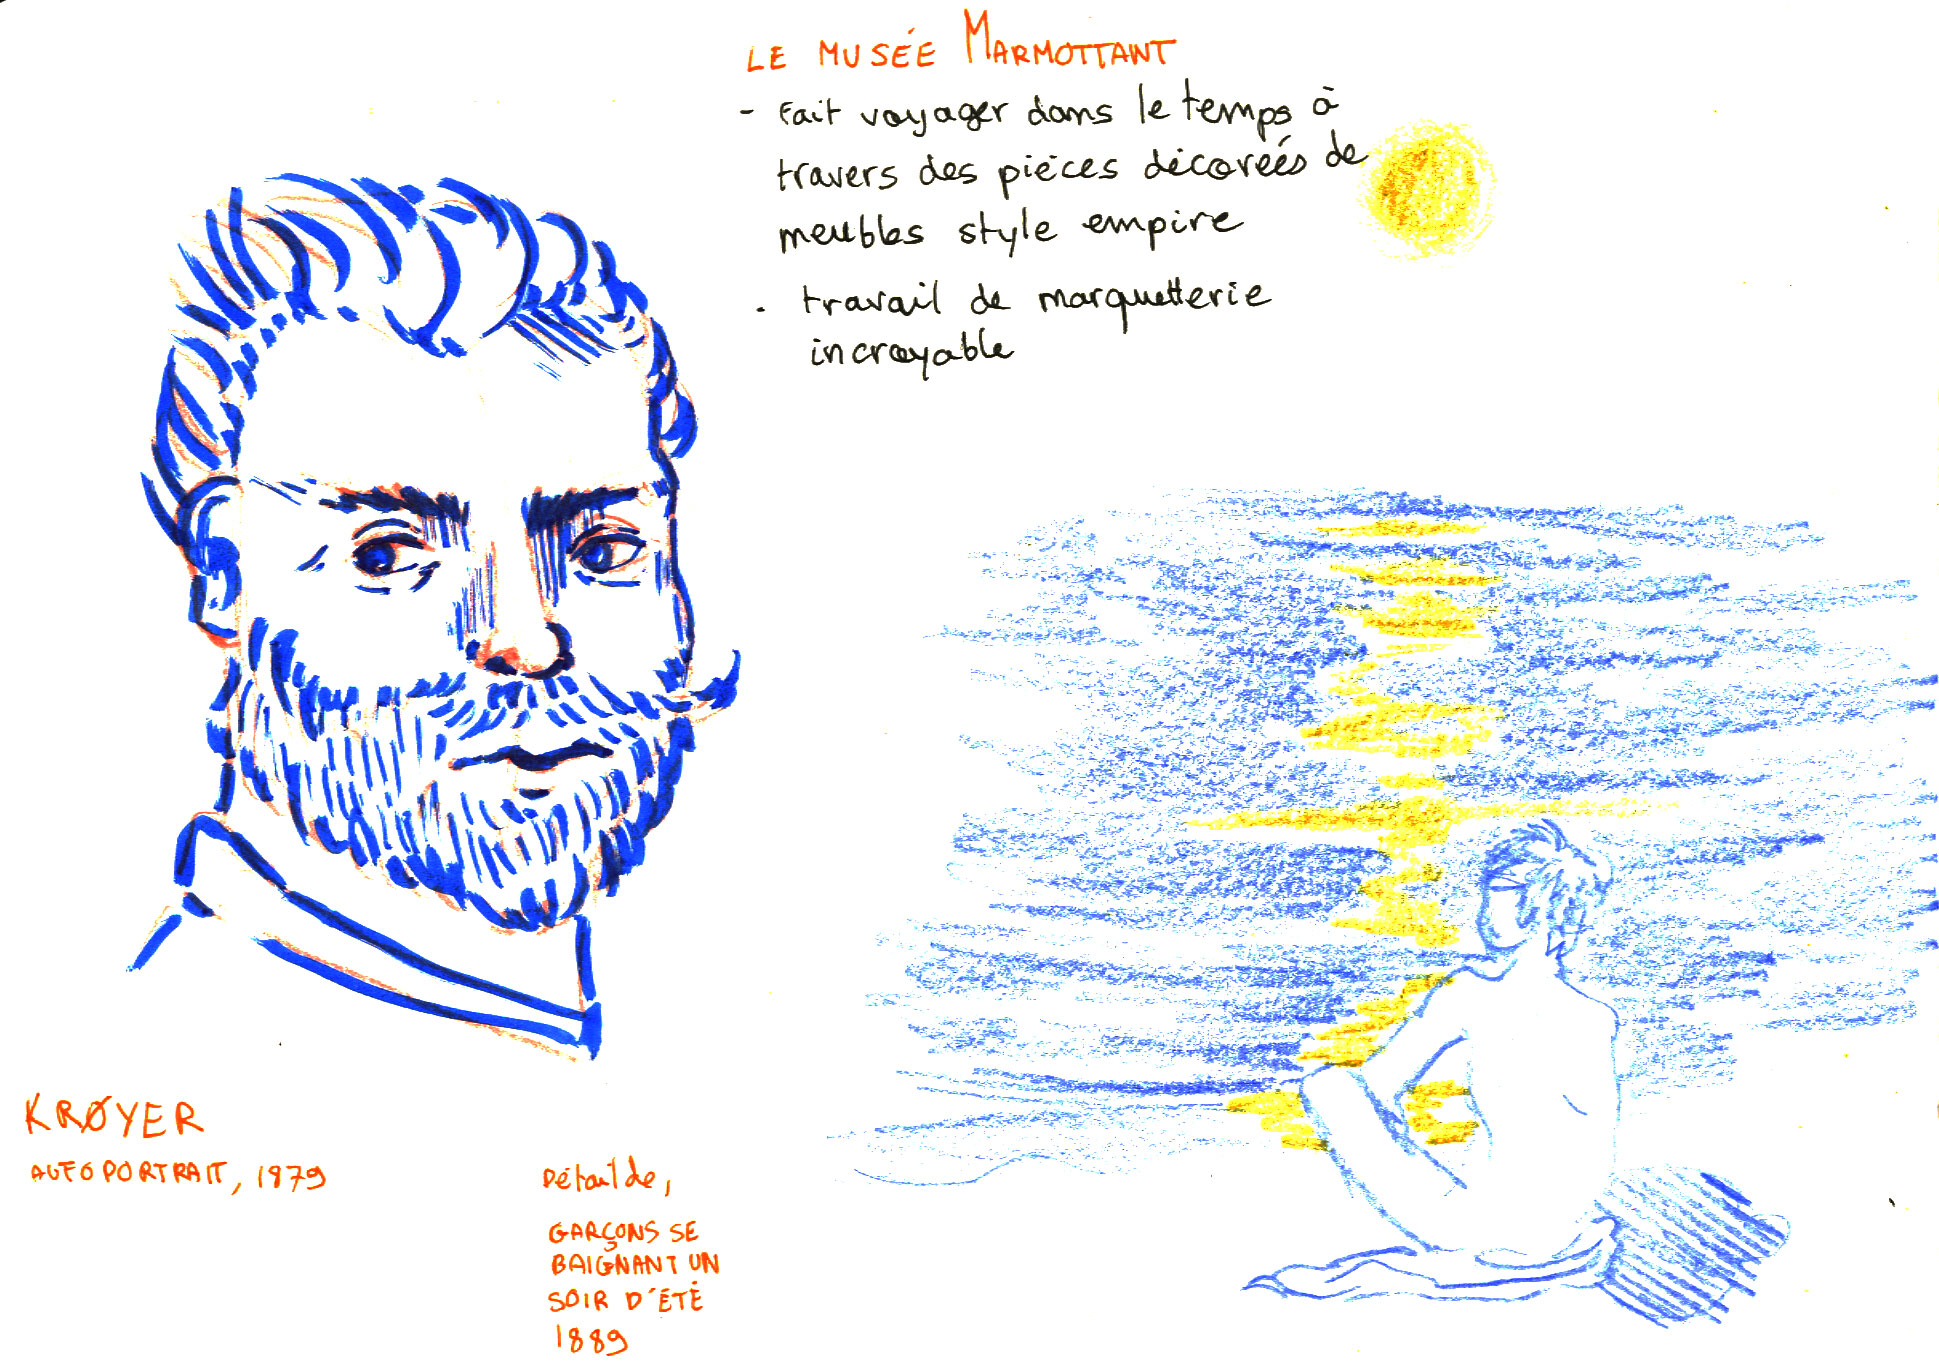 LE MUSÉE MARMOTTANT
- Fait voyager dans le temps à
travers des pièces décoreés de
meubles style empire
- travail de marquetterie
incroyable
KRØYER
AUTOPORTRAIT, 1879
Détail de,
GARÇONS SE
BAIGNANT UN
SOIR D'ÉTÉ
1889